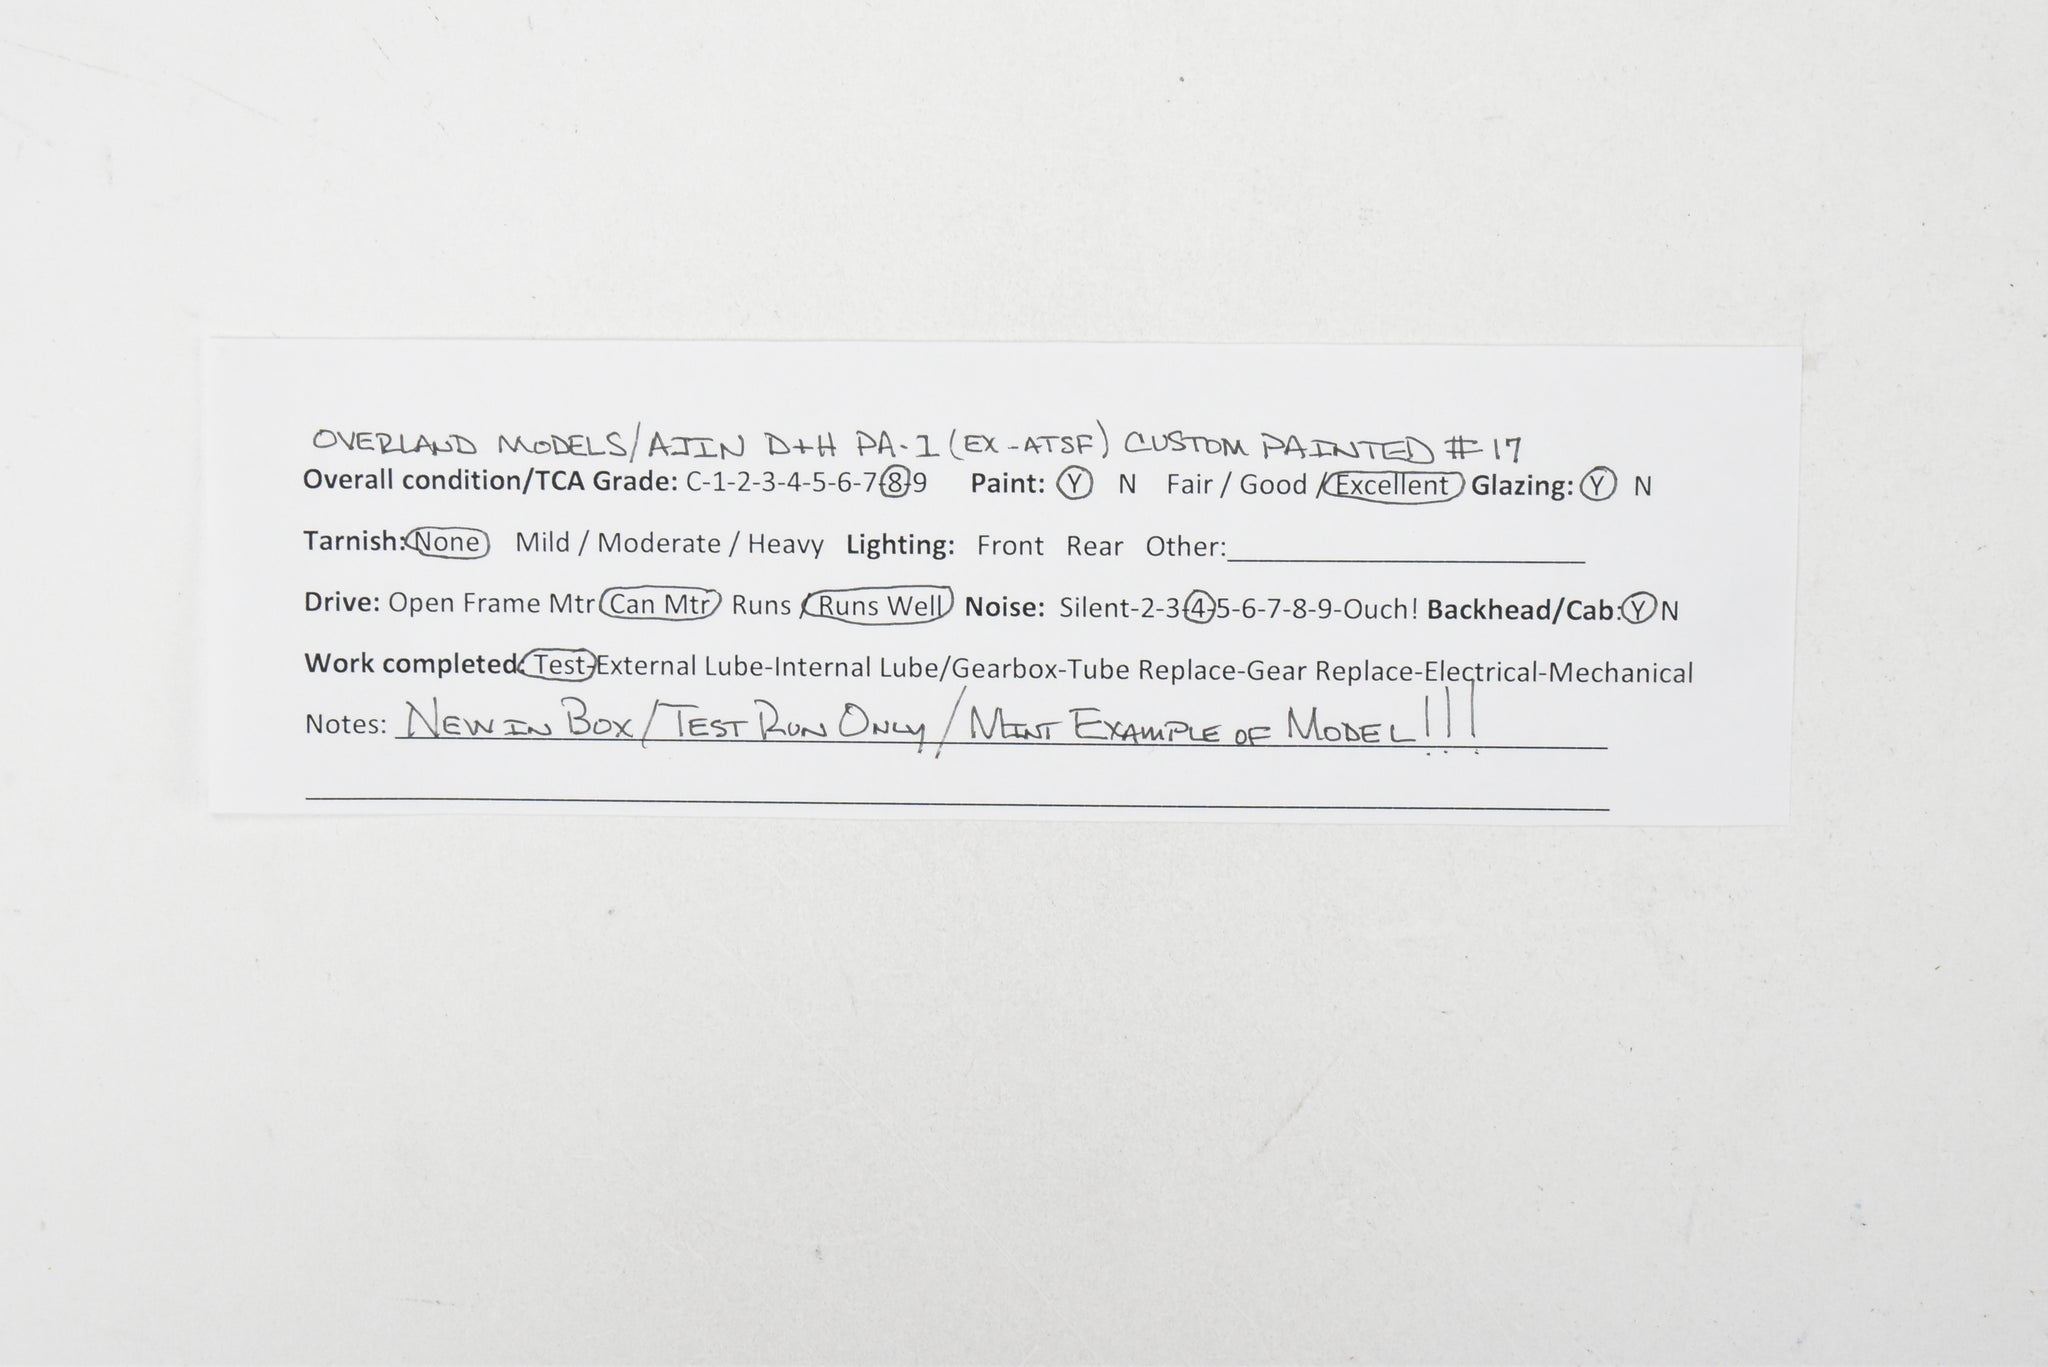 OVERLAND MODELS/AJIN D+H PA-1 (EX-ATSF) CUSTOM PAINTED #17
Overall condition/TCA Grade: C-1-2-3-4-5-6-7-8-9 Paint: Y N Fair / Good / Excellent Glazing: Y N
Tarnish: None Mild / Moderate / Heavy Lighting: Front Rear Other:
Drive: Open Frame Mtr Can Mtr Runs / Runs Well Noise: Silent-2-3-4-5-6-7-8-9-Ouch! Backhead/Cab: Y N
Work completed: Test-External Lube-Internal Lube/Gearbox-Tube Replace-Gear Replace-Electrical-Mechanical
Notes: NEW IN BOX / TEST RUN ONLY / MINT EXAMPLE OF MODEL!!!